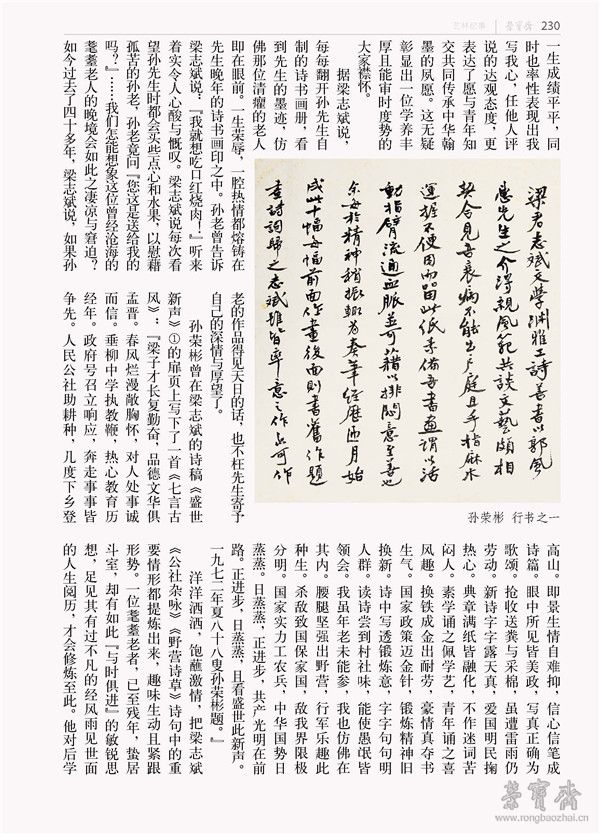 艺林纪事 荣宝斋 230
一生成绩平平，同
时也率性表现出我
写我心，任他人评
说的达观态度，更
表达了愿与青年知
交共同传承中华翰
墨的夙愿。这无疑
彰显出一位学养丰
厚且能审时度势的
大家襟怀。
据梁志斌说，
每每翻开孙先生自
制的诗书画册，看
到先生的墨迹，仿
佛那位清癯的老人
即在眼前。一生荣辱，一腔热情都熔铸在
先生晚年的诗书画印之中。孙老曾告诉
梁志斌说：『我就想吃口红烧肉！』听来
着实令人心酸与慨叹。梁志斌说每次看
望孙先生时都会买些点心和水果，以慰藉
孤苦的孙老，孙老竟问『您这是送给我的
吗？』……我们怎能想象这位曾经沧海的
耄耋老人的晚境会如此之凄凉与窘迫？
如今过去了四十多年，梁志斌说，如果孙
梁君志斌文學渊雅工詩善書以郭風
惠先生之介得親風範共談文藝頗相
契合見吾衰病不能出户庭且手指麻木
運握不便因而留此纸素備吾書畫謂以活
動指臂流通血脈並可藉以排悶意至善也
余每於精神稍振輒为奏筆經歷近月始
成此十幅每幅前面作畫後面則書舊作題
畫詩詞歸之志斌雖皆率意之作亦可作
孙荣彬 行书之一
老的作品得见天日的话，也不枉先生寄予
自己的深情与厚望了。
孙荣彬曾在梁志斌的诗稿《盛世
新声》①的扉页上写下了一首《七言古
风》：『梁子才长复勤奋，品德文华俱
孟晋。春风烂漫敞胸怀，对人处事诚
而信。垂柳中学执教鞭，热心教育历
经年。政府号召立响应，奔走事事皆
争先。人民公社助耕种，几度下乡登
高山。即景生情自难抑，信心信笔成
诗篇。眼中所见皆美政，写真正确为
歌颂。抢收送粪与采棉，虽遭雷雨仍
劳动。新诗字字露天真，爱国明民掬
热心。典章满纸皆融化，不作迷词苦
闷人。素学诵之佩学艺，青年诵之喜
风趣。换铁成金出耐劳，豪情真夺书
生气。国家政策迈金针，锻炼精神旧
换新。诗中写透锻炼意，字字句句明
人群。读诗尝到村社味，能使愚氓皆
领会。我虽年老未能参，我也仿佛在
其内。腰腿坚强出野营，行军乐趣此
种生。杀敌致国保家国，敌我界限极
分明。国家实力工农兵，中华国势日
蒸蒸。日蒸蒸，正进步，共产光明在前
路。正进步，日蒸蒸，且看盛世此新声。
一九七二年夏八十八叟孙荣彬题。』
洋洋洒洒，饱蘸激情，把梁志斌
《公社杂咏》《野营诗草》诗句中的重
要情形都提炼出来，趣味生动且紧跟
形势。一位耄耋老者，已至残年，蛰居
斗室，却有如此『与时俱进』的敏锐思
想，足见其有过不凡的经风雨见世面
的人生阅历，才会修炼至此。他对后学
荣宝斋
www.rongbaozhai.cn